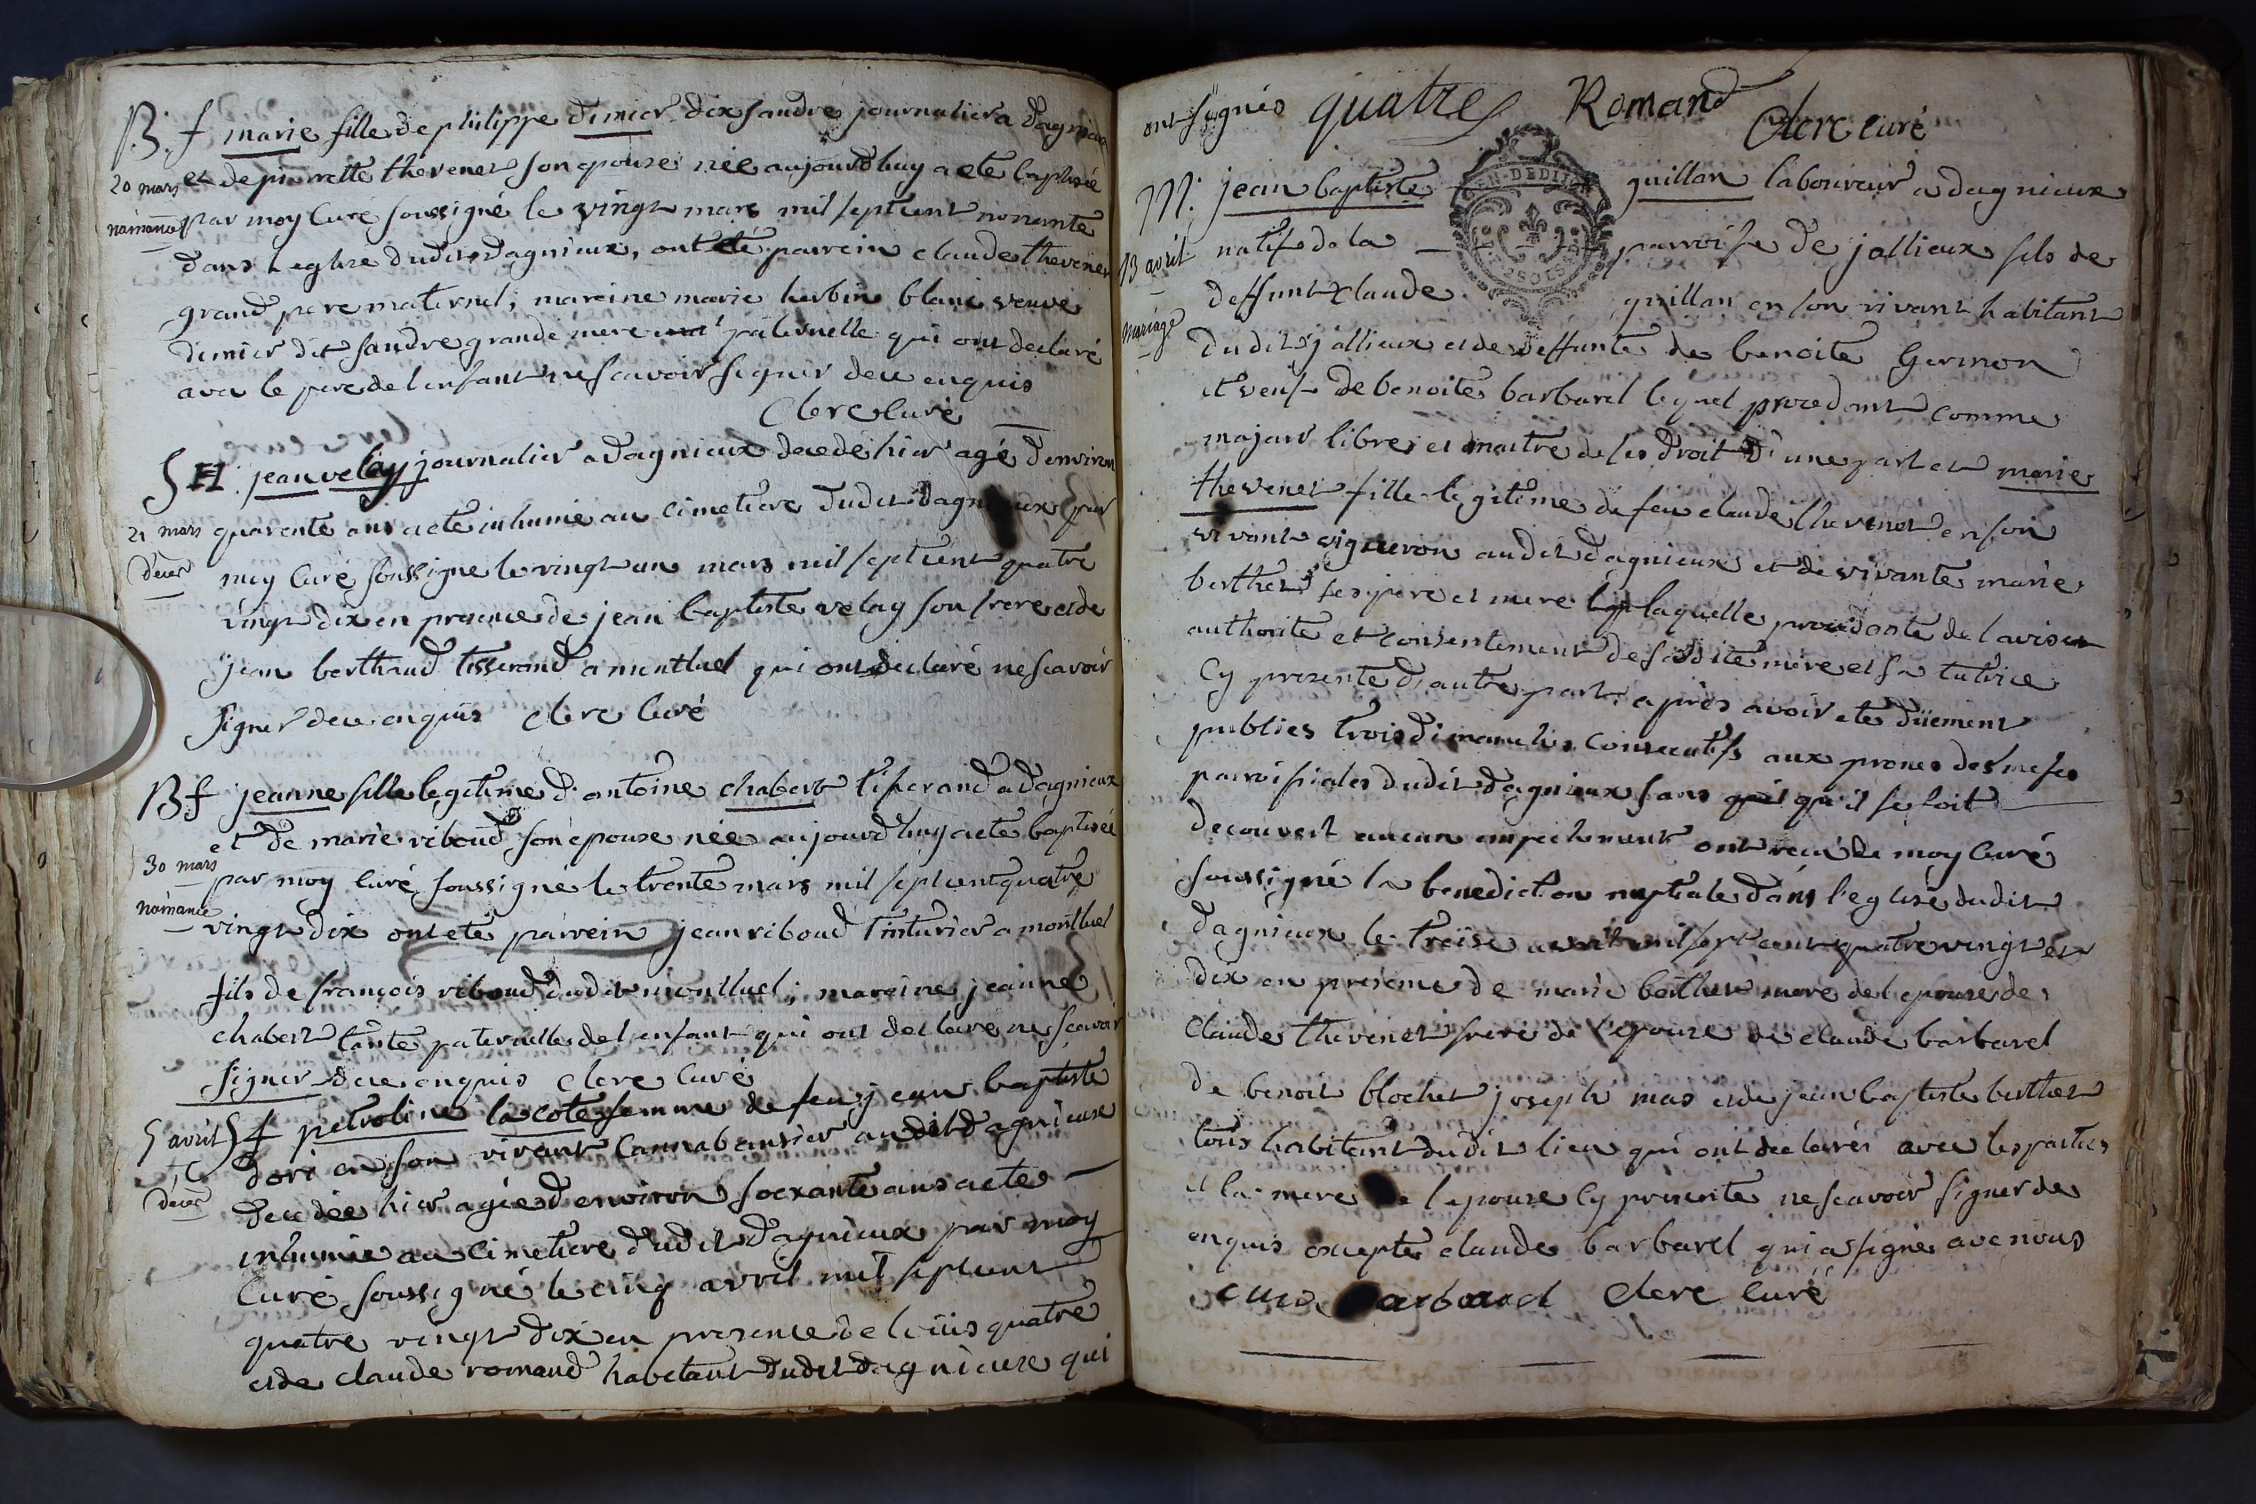 B. f marie fille de philippe dimier dix sandre journalier a dagnieux
20 mars
naisance
et de pierrette thevenet son epouse née aujourd'huy a eté baptisée
par moy curé soussigné le vingt mars mil sept cent nonante
dans l'eglise dudit dagnieux, ont eté parrein claude thevenet
grand pere maternel; mareine marie herbin blanc veuve
dimier dit sandre grande mere paternelle qui ont declaré
avec le pere de l'enfant ne scavoir signer de ce enquis
Clerc curé
S H. jean velay journalier a dagnieux decedé hier agé d'environ
21 mars
deces
quarente ans a eté inhumé au cimetiere dudit dagnieux par
moy curé soussigné le vingt un mars mil sept cent quatre
vingt dix en presence de jean baptiste velay son frere et de
jean berthaud tisserand a montluel qui ont declaré ne scavoir
signer de ce enquis Clerc curé
B f jeanne fille legitime d'antoine chabert tisserand a dagnieux
30 mars
naisance
et de marie riboud son epouse née aujourd'huy a eté baptisée
par moy curé soussigné le trente mars mil sept cent quatre
vingt dix ont eté parrein jean riboud tinturier a montluel
fils de françois riboud dudit montluel; mareine jeanne
chabert tante paternelle de l'enfant qui ont declaré ne scavoir
signer de ce enquis Clerc curé
5 avril
deces
S f petroline la cote femme de feu jean baptiste
dori en son vivant cannabansier audit dagnieux
decedée hier agée d'environ soexante ans a eté
inhumée au cimetiere dudit dagnieux par moy
curé soussigné le cinq avril mil sept cent
quatre vingt dix en presence de loüis quatre
et de claude romand habitant dudit dagnieux qui
ont signés quatre Romand Clerc curé
M. jean baptiste guillon laboureur a dagnieux
13 avril
mariage
natif de la parroisse de jallieux fils de
deffunt claude guillon en son vivant habitant
dudit jallieux et de deffunte de benoite Germon
et veuf de benoite barbarel lequel procedant comme
majeur libre et maitre de ses droit d'une part et marie
thevenet fille legitime de feu claude thevenet en son
vivant vigneron audit dagnieux et de vivante marie
berthet ses pere et mere laquelle procedante de l'avis
authorité et consentement de sa dite mere et sa tutrice
cy presente d'autre part, après avoir eté düement
publies trois dimanches consecutifs aux prones des meses
parroissiales dudit dagnieux sans qu'il se soit
decouvert aucun empechement ont recu de moy curé
soussigné la benediction nuptiale dans l'eglise dudit
dagnieux le treise avril mil sept cent quatre vingt et
dix en presence de marie berthet mere de l'epouse de
claude thevenet frere de l'epouse de claude barbarel
de benoit blochet joseph mas et de jean baptiste berthet
tous habitant dudit lieu qui ont declarés avec les parties
et la mere de l'epouse cy presente ne scavoir signer de
enquis excepté claude barbarel qui a signé avec nous
Clerc curé